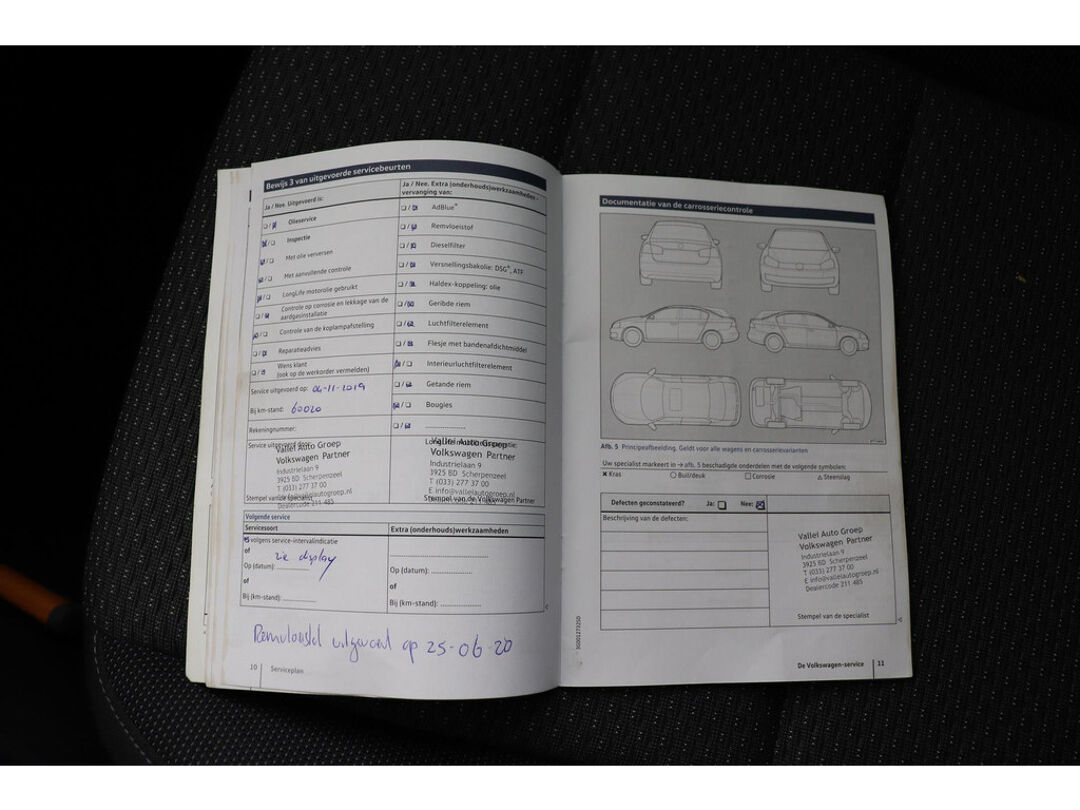 Bewijs 3 van uitgevoerde servicebeurten
Ja / Nee. Uitgevoerd is:
Olieservice
Inspectie
Met olie verversen
Met aanvullende controle
LongLife motorolie gebruikt
Controle op corrosie en lekkage van de
aardgasinstallatie
Controle van de koplampafstelling
Reparatieadvies
Wens klant
(ook op de werkorder vermelden)
Service uitgevoerd op: 04-11-2019
Bij km-stand: 60020
Rekeningnummer:
Service uitgevoerd door:
Vallei Auto Groep
Volkswagen Partner
Industrielaan 9
3925 BD Scherpenzeel
T (033) 277 37 00
E info@vallelautogroep.nl
Dealercode 211 485
Stempel van de specialist
Ja / Nee. Extra (onderhouds)werkzaamheden -
vervanging van:
AdBlue®
Remvloeistof
Dieselfilter
Versnellingsbakolie: DSG®, ATF
Haldex-koppeling: olie
Geribde riem
Luchtfilterelement
Flesje met bandenafdichtmiddel
Interieurluchtfilterelement
Getande riem
Bougies
Vallei Auto Groep
Volkswagen Partner
Industrielaan 9
3925 BD Scherpenzeel
T (033) 277 37 00
E info@vallelautogroep.nl
Stempel van de Volkswagen Partner
Volgende service
Servicesoort
Extra (onderhouds)werkzaamheden
volgens service-intervalindicatie
of
zie display
Op (datum):
of
Bij (km-stand):
Op (datum):
of
Bij (km-stand):
Remvloeistof uitgevoerd op 25-06-20
10 Serviceplan
Documentatie van de carrosseriecontrole
Afb. 5 Principeafbeelding. Geldt voor alle wagens en carrosserievarianten
Uw specialist markeert in → afb. 5 beschadigde onderdelen met de volgende symbolen:
Kras Buil/deuk Corrosie Steenslag
Defecten geconstateerd? Ja: Nee:
Beschrijving van de defecten:
Vallei Auto Groep
Volkswagen Partner
Industrielaan 9
3925 BD Scherpenzeel
T (033) 277 37 00
E info@vallelautogroep.nl
Dealercode 211 485
Stempel van de specialist
3G0012732SD
De Volkswagen-service 11